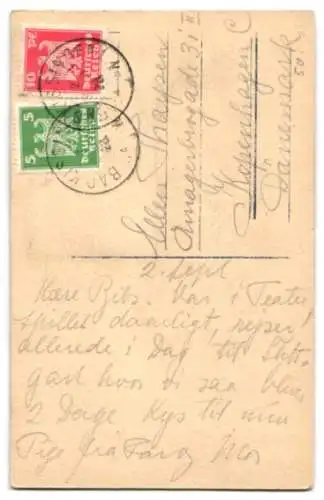 10 Pf
Deutsches
Reich
5 5
Deutsches
Reich
Ellen Thaysen
Amagerbrogade 3 i
Kopenhagen
Dänemark
2. Sept
Kære Bibs. Var i Teater
spillet daarligt, rejser
allerede i Dag til Stutt-
gart hvor vi saa bliver
2 Dage Kys til min
Pige fra Far og Mor